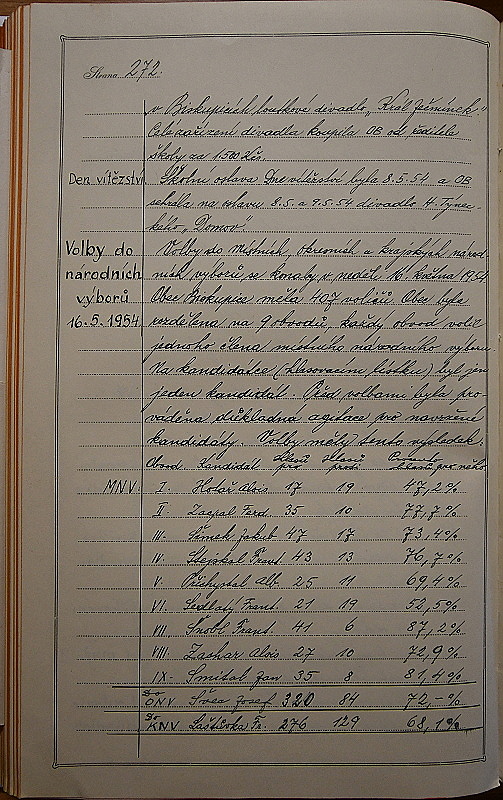 Strana 272.
v Biskupicích loutkové divadlo „Král Ječmínek."
Celé zařízení divadla koupila OB od ředitele
školy za 1.500 Kčs.
Den vítězství Školní oslava Dne vítězství byla 8.5.54 a OB
sehrála na oslavu 8.5. a 9.5.54 divadlo H. Týnec-
kého „Domov".
Volby do Volby do místních, okresních a krajských národ-
národních ních výborů se konaly v neděli 16. května 1954.
výborů Obec Biskupice měla 407 voličů. Obec byla
16.5.1954 rozdělena na 9 obvodů, každý obvod volil
jednoho člena místního národního výboru.
Na kandidátce (hlasovacím lístku) byl jen
jeden kandidát. Před volbami byla pro-
váděna důkladná agitace pro navržené
kandidáty. Volby měly tento výsledek.
Obvod. Kandidát hlasů pro hlasů proti Procento hlasů pro něho
MNV I. Alois 17 19 47,2%
II. Ferd. 35 10 77,7%
III. Šimek Jakub 47 17 73,4%
IV. Stejskal Frant. 43 13 76,7%
V. Přichystal Alb. 25 11 69,4%
VI. Sedlatý Frant. 21 19 52,5%
VII. Šnobl Frant. 41 6 87,2%
VIII. Zachar Alois 27 10 72,9%
IX. Smítal Jan 35 8 81,4%
Do ONV Švec Josef 320 84 72,-%
Do KNV Laštůvka Fr. 276 129 68,1%